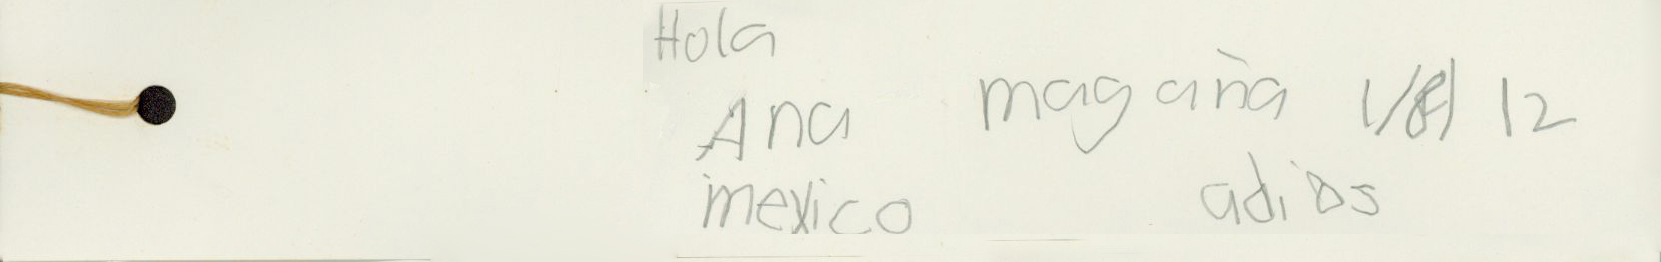 Hola
Ana magaña 1/8/12
mexico adios